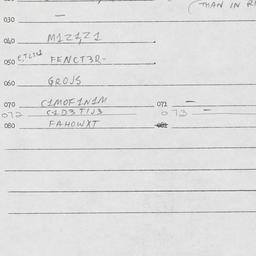 (THAN IN
030 —
040 M1Z1,Z1
050 FENCT3R-
060 GROJS
070 C1MOF1N1M 071 —
072 C1D3TIJ3 073 —
080 FAHOWXT 081